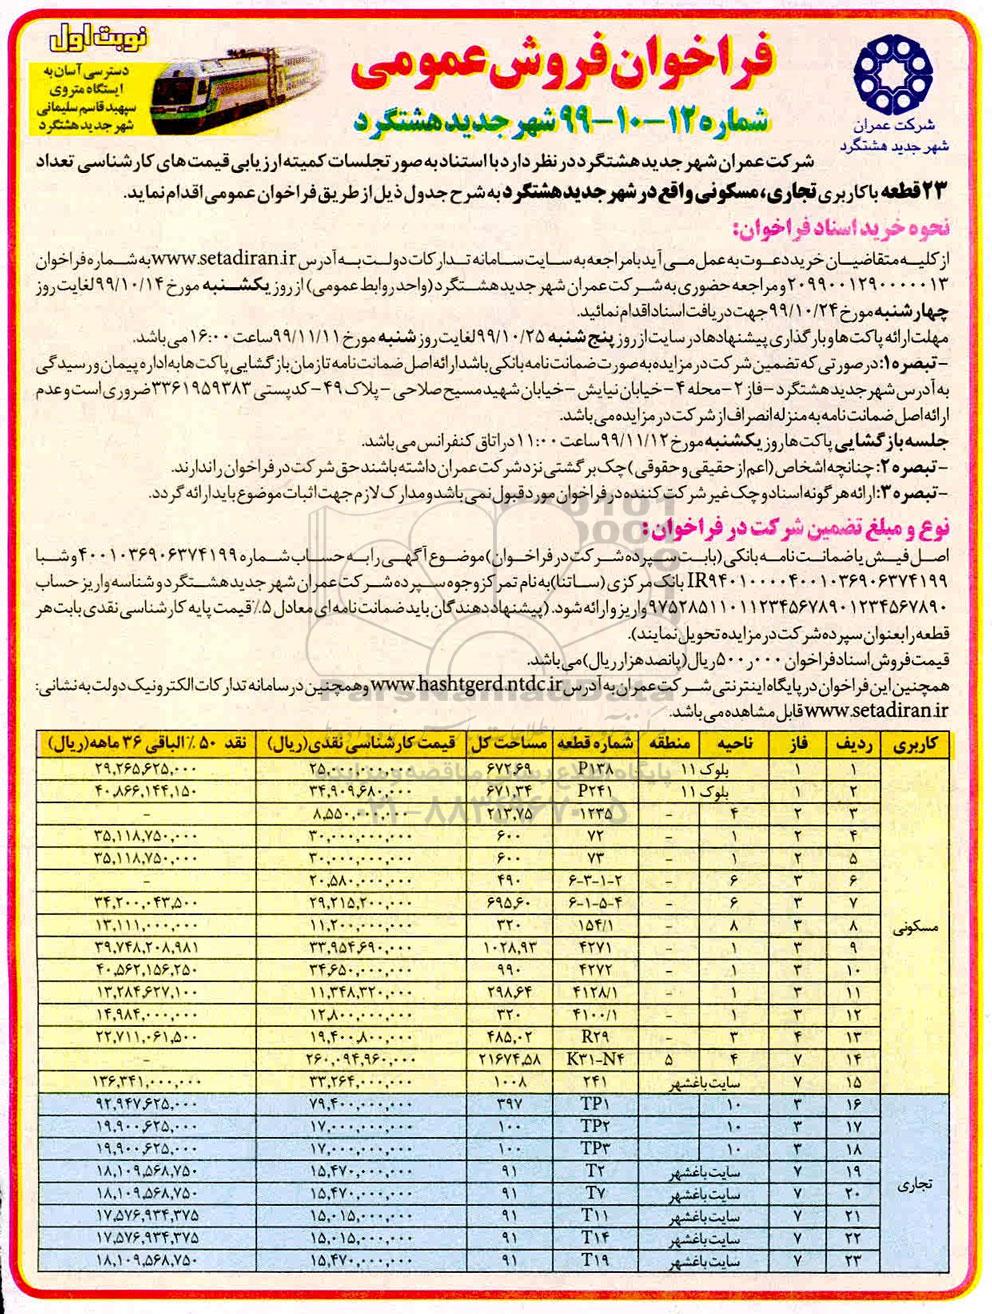 نوبت اول
دسترسی آسان به
ایستگاه متروی
سپهبد قاسم سلیمانی
شهر جدید هشتگرد
فراخوان فروش عمومی
شماره ۱۲-۱۰-۹۹ شهر جدید هشتگرد
شرکت عمران
شهر جدید هشتگرد
شرکت عمران شهر جدید هشتگرد در نظر دارد با استناد به صورتجلسات کمیته ارزیابی قیمت‌های کارشناسی تعداد
۲۳ قطعه با کاربری تجاری، مسکونی واقع در شهر جدید هشتگرد به شرح جدول ذیل از طریق فراخوان عمومی اقدام نماید.
نحوه خرید اسناد فراخوان:
از کلیه متقاضیان خرید دعوت به عمل می آید با مراجعه به سایت سامانه تدارکات دولت به آدرس www.setadiran.ir به شماره فراخوان
۲۰۹۹۰۰۱۲۹۰۰۰۰۰۱۳ و مراجعه حضوری به شرکت عمران شهر جدید هشتگرد (واحد روابط عمومی) از روز یکشنبه مورخ ۹۹/۱۰/۱۴ لغایت روز
چهارشنبه مورخ ۹۹/۱۰/۲۴ جهت دریافت اسناد اقدام نمائید.
مهلت ارائه پاکت ها و بارگذاری پیشنهادها در سایت از روز پنج شنبه ۹۹/۱۰/۲۵ لغایت روز شنبه مورخ ۹۹/۱۱/۱۱ ساعت ۱۶:۰۰ می باشد.
-تبصره ۱: در صورتی که تضمین شرکت در مزایده به صورت ضمانت نامه بانکی باشد ارائه اصل ضمانت نامه تا زمان بازگشایی پاکت ها به اداره پیمان و رسیدگی
به آدرس شهر جدید هشتگرد - فاز ۲ - محله ۴ - خیابان نیایش - خیابان شهید مسیح صلاحی - پلاک ۴۹ - کدپستی ۳۳۶۱۹۵۹۳۸۳ ضروری است و عدم
ارائه اصل ضمانت نامه به منزله انصراف از شرکت در مزایده می باشد.
جلسه بازگشایی پاکت ها روز یکشنبه مورخ ۹۹/۱۱/۱۲ ساعت ۱۱:۰۰ در اتاق کنفرانس می باشد.
-تبصره ۲: چنانچه اشخاص (اعم از حقیقی و حقوقی) چک برگشتی نزد شرکت عمران داشته باشند حق شرکت در فراخوان را ندارند.
-تبصره ۳: ارائه هر گونه اسناد و چک غیر شرکت کننده در فراخوان مورد قبول نمی باشد و مدارک لازم جهت اثبات موضوع باید ارائه گردد.
نوع و مبلغ تضمین شرکت در فراخوان :
اصل فیش یا ضمانت نامه بانکی (بابت سپرده شرکت در فراخوان) موضوع آگهی را به حساب شماره ۴۰۰۱۰۳۶۹۰۶۳۷۴۱۹۹ و شبا
IR۹۴۰۱۰۰۰۰۴۰۰۱۰۳۶۹۰۶۳۷۴۱۹۹ بانک مرکزی (ساتنا) به نام تمرکز وجوه سپرده شرکت عمران شهر جدید هشتگرد و شناسه واریز حساب
۹۷۵۲۸۵۱۱۰۱۱۲۳۴۵۶۷۸۹۰۱۲۳۴۵۶۷۸۹۰ واریز و ارائه شود. (پیشنهاد دهندگان باید ضمانت نامه ای معادل ۵٪ قیمت پایه کارشناسی نقدی بابت هر
قطعه را بعنوان سپرده شرکت در مزایده تحویل نمایند).
قیمت فروش اسناد فراخوان ۵۰۰ر۰۰۰ ریال (پانصد هزار ریال) می باشد.
همچنین این فراخوان در پایگاه اینترنتی شرکت عمران به آدرس www.hashtgerd.ntdc.ir و همچنین در سامانه تدارکات الکترونیک دولت به نشانی:
www.setadiran.ir قابل مشاهده می باشد.
کاربری ردیف فاز ناحیه منطقه شماره قطعه مساحت کل قیمت کارشناسی نقدی (ریال) نقد ۵۰٪ الباقی ۳۶ ماهه (ریال)
۱ ۱ بلوک ۱۱ P۱۳۸ ۶۷۲٫۶۹ ۲۵,۰۰۰,۰۰۰,۰۰۰ ۲۹,۲۶۵,۶۲۵,۰۰۰
۲ ۱ بلوک ۱۱ P۲۴۱ ۶۷۱٫۳۴ ۳۴,۹۰۹,۶۸۰,۰۰۰ ۴۰,۸۶۶,۱۴۴,۱۵۰
۳ ۲ ۴ - ۱۲۳۵ ۲۱۳٫۷۵ ۸,۵۵۰,۰۰۰,۰۰۰ -
۴ ۲ ۱ - ۷۲ ۶۰۰ ۳۰,۰۰۰,۰۰۰,۰۰۰ ۳۵,۱۱۸,۷۵۰,۰۰۰
۵ ۲ ۱ - ۷۳ ۶۰۰ ۳۰,۰۰۰,۰۰۰,۰۰۰ ۳۵,۱۱۸,۷۵۰,۰۰۰
۶ ۳ ۶ - ۶-۳-۱-۲ ۴۹۰ ۲۰,۵۸۰,۰۰۰,۰۰۰ -
۷ ۳ ۶ - ۶-۱-۵-۴ ۶۹۵٫۶۰ ۲۹,۲۱۵,۲۰۰,۰۰۰ ۳۴,۲۰۰,۰۴۳,۵۰۰
مسکونی ۸ ۳ ۸ - ۱۵۴/۱ ۳۲۰ ۱۱,۲۰۰,۰۰۰,۰۰۰ ۱۳,۱۱۱,۰۰۰,۰۰۰
۹ ۳ ۱ - ۴۲۷۱ ۱۰۲۸٫۹۳ ۳۳,۹۵۴,۶۹۰,۰۰۰ ۳۹,۷۴۸,۲۰۸,۹۸۱
۱۰ ۳ ۱ - ۴۲۷۲ ۹۹۰ ۳۴,۶۵۰,۰۰۰,۰۰۰ ۴۰,۵۶۲,۱۵۶,۲۵۰
۱۱ ۳ ۱ - ۴۱۲۸/۱ ۲۹۸٫۶۴ ۱۱,۳۴۸,۳۲۰,۰۰۰ ۱۳,۲۸۴,۶۲۷,۱۰۰
۱۲ ۳ ۱ - ۴۱۰۰/۱ ۳۲۰ ۱۲,۸۰۰,۰۰۰,۰۰۰ ۱۴,۹۸۴,۰۰۰,۰۰۰
۱۳ ۴ ۳ - R۲۹ ۴۸۵٫۰۲ ۱۹,۴۰۰,۸۰۰,۰۰۰ ۲۲,۷۱۱,۰۶۱,۵۰۰
۱۴ ۷ ۴ ۵ K۳۱-N۴ ۲۱۶۷۴٫۵۸ ۲۶۰,۰۹۴,۹۶۰,۰۰۰ -
۱۵ ۷ سایت باغشهر ۲۴۱ ۱۰۰۸ ۳۳,۲۶۴,۰۰۰,۰۰۰ ۱۳۶,۳۴۱,۰۰۰,۰۰۰
۱۶ ۳ ۱۰ TP۱ ۳۹۷ ۷۹,۴۰۰,۰۰۰,۰۰۰ ۹۲,۹۴۷,۶۲۵,۰۰۰
۱۷ ۳ ۱۰ TP۲ ۱۰۰ ۱۷,۰۰۰,۰۰۰,۰۰۰ ۱۹,۹۰۰,۶۲۵,۰۰۰
۱۸ ۳ ۱۰ TP۳ ۱۰۰ ۱۷,۰۰۰,۰۰۰,۰۰۰ ۱۹,۹۰۰,۶۲۵,۰۰۰
۱۹ ۷ سایت باغشهر T۲ ۹۱ ۱۵,۴۷۰,۰۰۰,۰۰۰ ۱۸,۱۰۹,۵۶۸,۷۵۰
تجاری ۲۰ ۷ سایت باغشهر T۷ ۹۱ ۱۵,۴۷۰,۰۰۰,۰۰۰ ۱۸,۱۰۹,۵۶۸,۷۵۰
۲۱ ۷ سایت باغشهر T۱۱ ۹۱ ۱۵,۰۱۵,۰۰۰,۰۰۰ ۱۷,۵۷۶,۹۳۴,۳۷۵
۲۲ ۷ سایت باغشهر T۱۴ ۹۱ ۱۵,۰۱۵,۰۰۰,۰۰۰ ۱۷,۵۷۶,۹۳۴,۳۷۵
۲۳ ۷ سایت باغشهر T۱۹ ۹۱ ۱۵,۴۷۰,۰۰۰,۰۰۰ ۱۸,۱۰۹,۵۶۸,۷۵۰
ParsNamadData